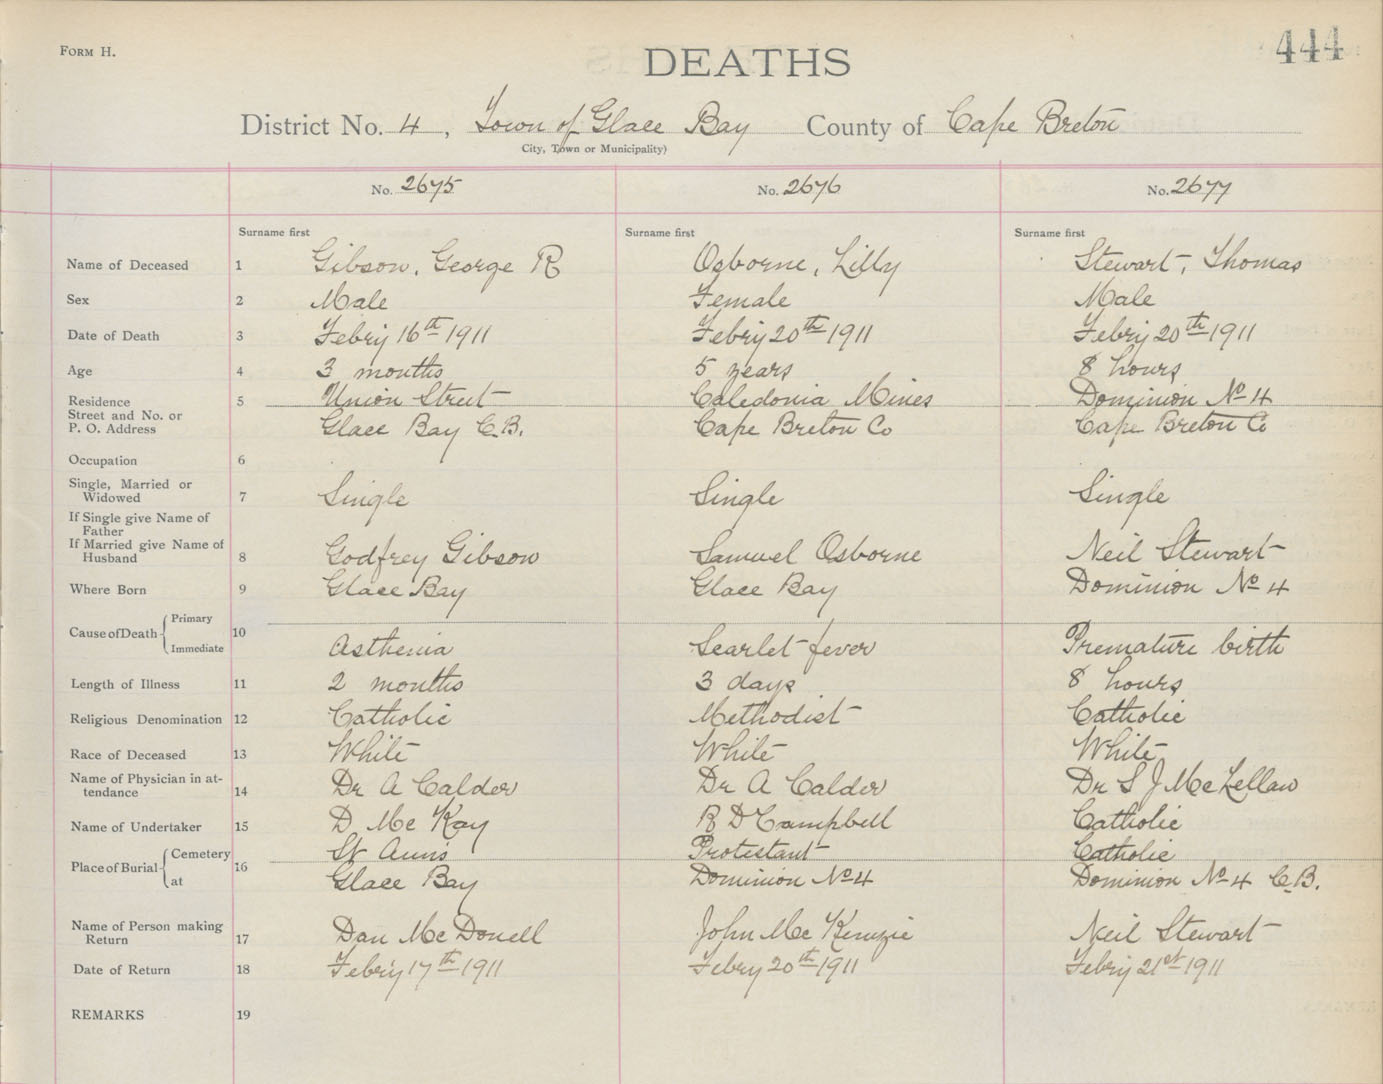 FORM H.
444
DEATHS
District No. 4, Town of Glace Bay County of Cape Breton
City, Town or Municipality)
No. 2675 No. 2676 No. 2677
Surname first Surname first Surname first
Name of Deceased 1 Gibson, George R Osborne, Lilly Stewart, Thomas
Sex 2 Male Female Male
Date of Death 3 Febry 16th 1911 Febry 20th 1911 Febry 20th 1911
Age 4 3 months 5 years 8 hours
Residence 5 Union Street Caledonia Mines Dominion No 4
Street and No. or
P. O. Address Glace Bay C.B. Cape Breton Co Cape Breton Co
Occupation 6
Single, Married or
Widowed 7 Single Single Single
If Single give Name of
Father
If Married give Name of
Husband 8 Godfrey Gibson Samuel Osborne Neil Stewart
Where Born 9 Glace Bay Glace Bay Dominion No 4
Primary
Cause of Death 10
Immediate Asthenia Scarlet fever Premature birth
Length of Illness 11 2 months 3 days 8 hours
Religious Denomination 12 Catholic Methodist Catholic
Race of Deceased 13 White White White
Name of Physician in at-
tendance 14 Dr A Calder Dr A Calder Dr S J McLellan
Name of Undertaker 15 D McKay R D Campbell Catholic
Cemetery St Anns Protestant Catholic
Place of Burial 16
at Glace Bay Dominion No 4 Dominion No 4 C.B.
Name of Person making
Return 17 Dan McDonell John McKenzie Neil Stewart
Date of Return 18 Febry 17th 1911 Febry 20th 1911 Febry 21st 1911
REMARKS 19